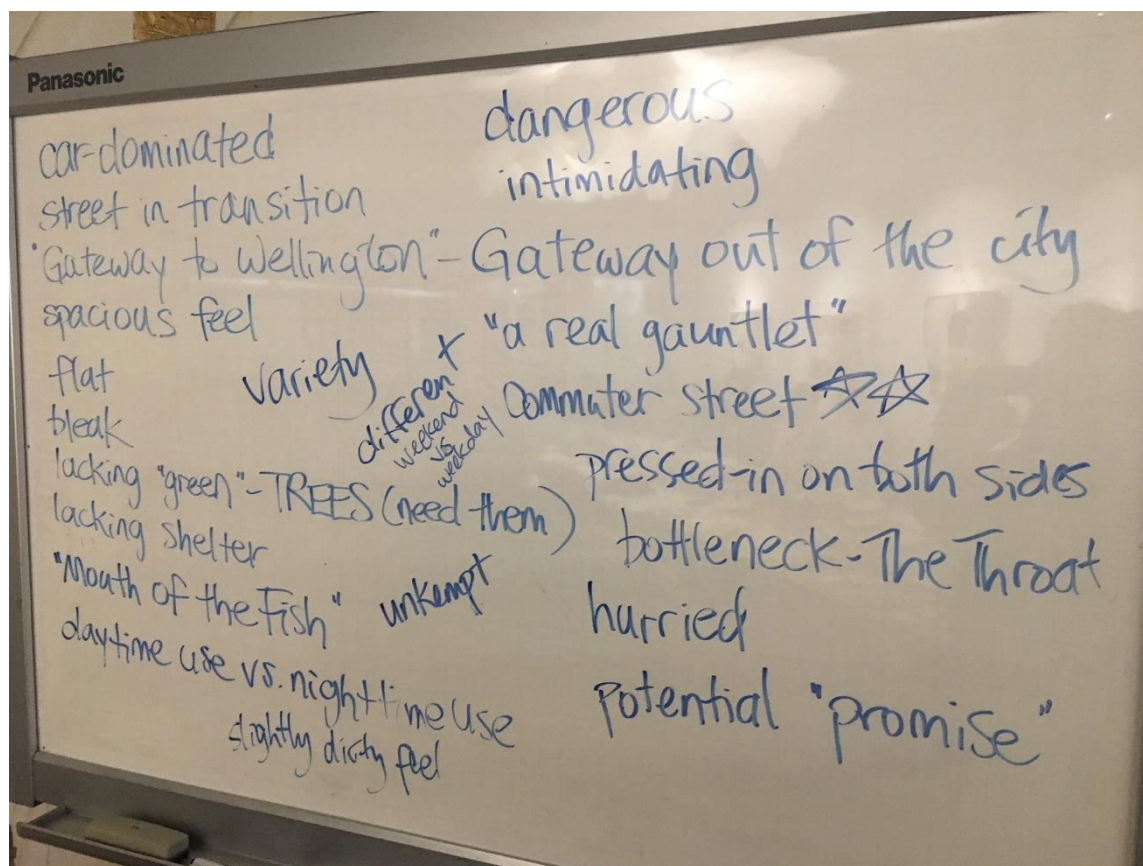 Panasonic
car-dominated
street in transition
"Gateway to Wellington" - Gateway out of the city
spacious feel
flat
bleak
lacking "green" - TREES (need them)
lacking shelter
"Mouth of the Fish"
daytime use vs. nighttime use
slightly dirty feel
variety
different
weekend
vs.
weekday
unkempt
dangerous
intimidating
"a real gauntlet"
Commuter street
pressed-in on both sides
bottleneck - The Throat
hurried
potential "promise"